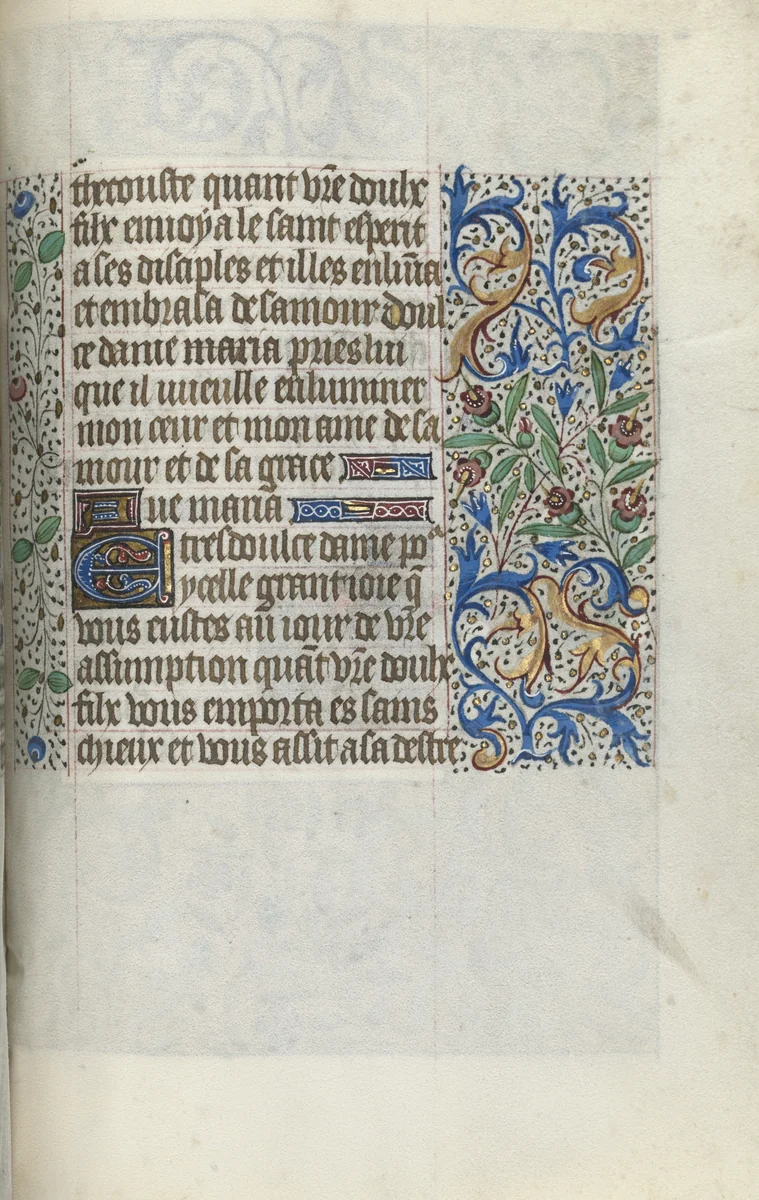 thecouste quant vr̄e doulx
filx enuoya le saint esperit
a ses disciples et illes enlūīa
et embrasa de samour doul
ce dame maria pries lui
que il vueulle enluminer
mon cœur et mon ame de sa
mour et de sa grace
Aue maria
E tresdoulce dame poᵘʳ
ycelle grant ioie q̄
vous eustes au iour de vr̄e
assumption quāt vr̄e doulx
filx vous emporta es sains
chieux et vous assit a sa destre